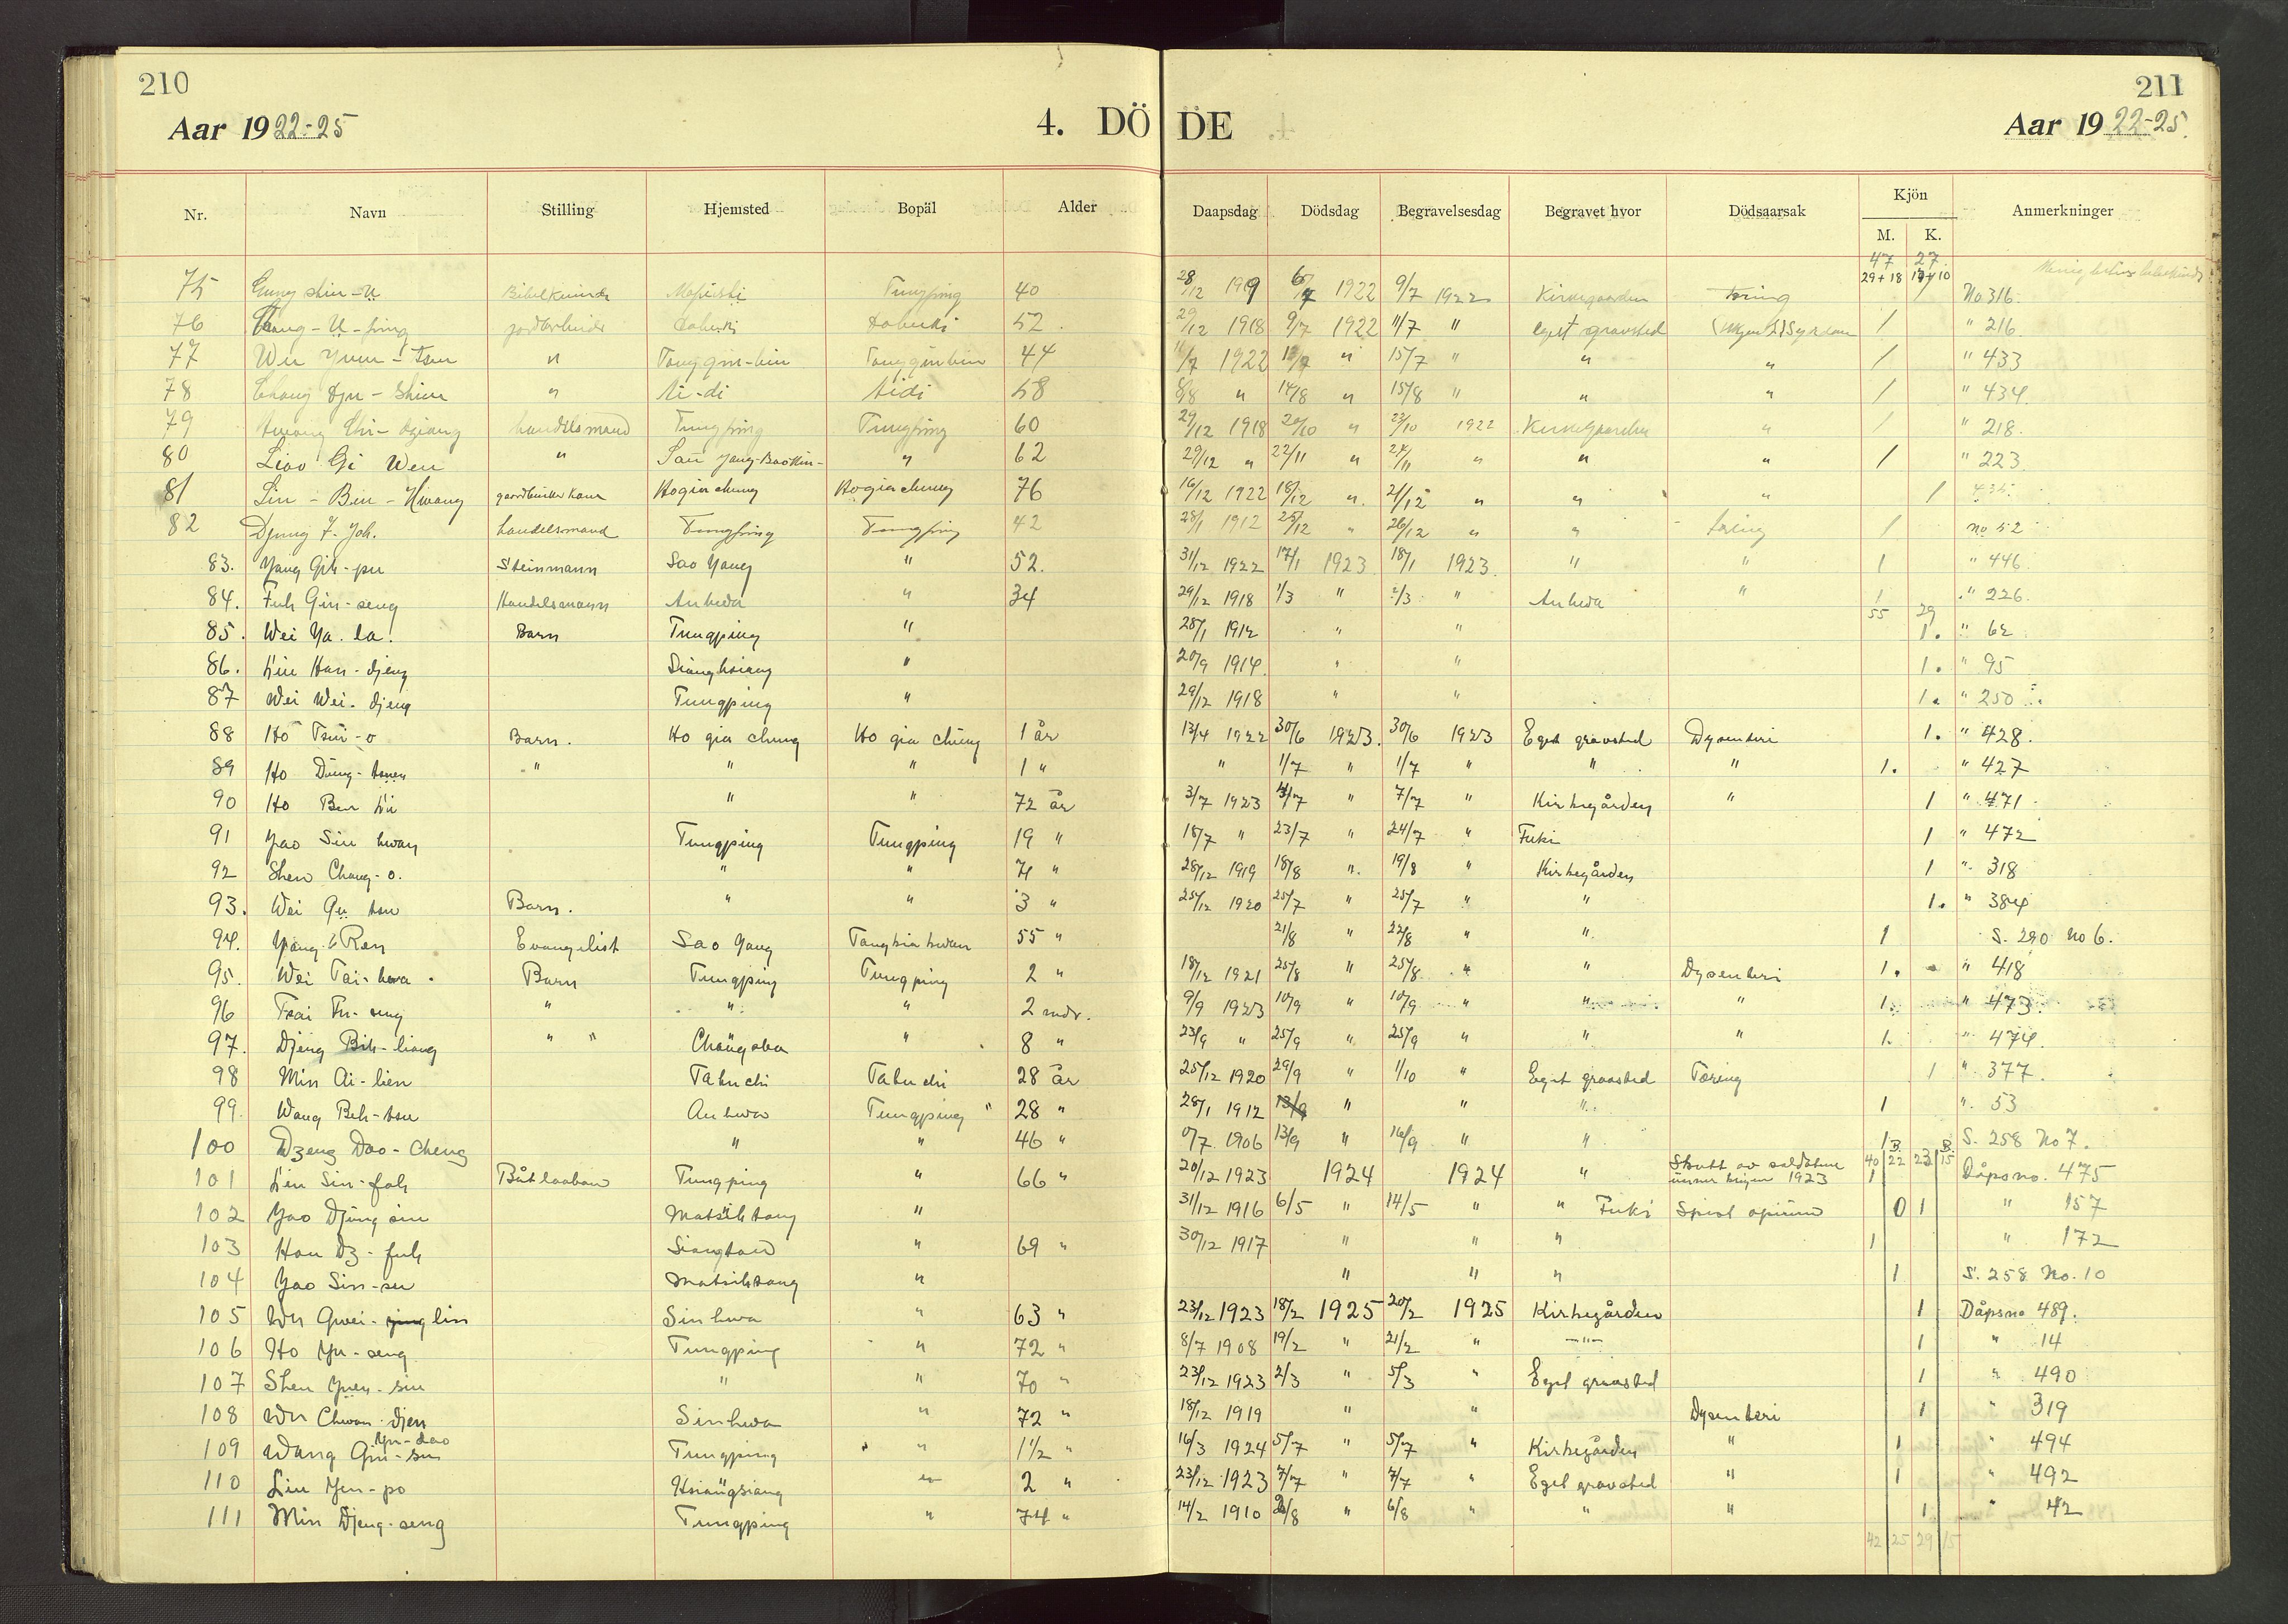 210
211
Aar 1922-25
4. DÖ DE
Aar 1922-25.
Nr. Navn Stilling Hjemsted Bopäl Alder Daapsdag Dödsdag Begravelsesdag Begravet hvor Dödsaarsak Kjön Anmerkninger
M. K.
47 27
29+18
75 40 28/12 1919 1922 9/7 1922 Kirkegaarden Tæring No 316.
76 52. 29/12 1918 9/7 1922 11/7 " eget gravsted 1 " 216
77 Wu Yuen-Tseu " 44 1922 " 15/7 " " " 1 " 433
78 Chang " Ai-di Aidi 58 " 14/8 " 15/8 " " " 1 " 434.
79 handelsmand Tungping Tungping 60 29/12 1918 20/10 " 23/10 1922 Kirkegaarden " 1 " 218.
80 Liao Gi Wen " " 62 29/12 " 22/11 " 24/11 " " " 1 " 223
81 Liu-Ben-Hwang Hogia chung Hogia chung 76 16/12 1922 18/12 " 21/12 " " " 1 435.
82 Djung F. Joh. handelsmand Tungping Tungping 42 28/1 1912 25/12 " 26/12 " " tæring 1 no 52
83. Yang Gih-pu Steinmann Sao Yang " 52. 31/12 1922 17/1 1923 18/1 1923. " " 1 " 446
84. Fuh Gin-seng Handelsmann Anhwa " 34 29/12 1918 1/3 " 2/3 " Anhwa " 1 " 226.
55 29
85. Wei Ya-la. Barn Tungping " 28/1 1912 " " 1. " 62
86. Liu Han-djeng Sianghsiang " 20/9 1914. " " 1. " 95
87 Wei Wei-djeng Tungping " 29/12 1918 " " 1. " 250
88 Ho Tsui-o Barn. Ho gia chung Ho gia chung 1 år 13/4 1922 30/6 1923. 30/6 1923 Eget gravsted Dysenteri 1. " 428.
89 Ho Dung-tsuen " " " 1 " " 1/7 " 1/7 " " " 1. " 427
90 Ho Ben Li " " 72 år 3/7 1923 " 7/7 " Kirkegården " 1 " 471
91 Yao Siu hwan Tungping Tungping 19 " 18/7 " 23/7 " 24/7 " Fuki 1 " 472
92 Shen Chang-o. " " 74 " 28/12 1919 18/8 " 19/8 " Kirkegården 1 " 318
93. Wei Gu tsu Barn. " " 3 " 25/12 1920 25/7 " 25/7 " " 1. " 384
94. Yang Ren Evangelist Sao Yang 55 " 21/8 " 22/8 " " 1 S. 290 No 6.
95. Wei Tai-hwa. Barn Tungping Tungping 2 " 18/12 1921 25/8 " 25/8. " " Dysenteri 1. " 418
96 Tsai Fu-seng " " " 2 mdr. 9/9 1923 10/9 " 10/9 " " " 1. " 473.
97. Djeng Bih-liang " " " 8 " 23/9 " 25/9 " 25/9 " " " 1. " 474.
98 Min Ai-lien Tahuchi Tahuchi 28 år 25/12 1920 29/9 " 1/10 " Eget gravsted Tæring 1 " 377.
99. Wang Beh-tsu Anhwa Tungping " 28 " 28/1 1912 13/9 " " " 1 " 53
100 Dzeng Dao-Cheng " " 46 " 1906 13/9 " 16/9 " " 1 S. 258 No 7.
B. B.
40 22 23 15
101 Liu Sin-foh Tungping " 66 " 20/12 1923 1924 1924 " Skutt av soldatene under krigen 1923 1 Dåpsno. 475
102 Yao Djung sin Matsihtang " 31/12 1916 6/5 " 14/5 " " Fuki Spist opium 0 1 " 157
103 Hou Dz-fuh Siangtan " 69 " 30/12 1917 " " " 1 " 172
104 Yao Sin-su Matsihtang " " " " 1 S. 258 No. 10
105 Wu Gwei-lin Sinhwa " 63 " 23/12 1923 18/2 1925 20/2 1925 Kirkegården 1 Dåpsno 489.
106 Ho Yu-seng Tungping " 72 " 8/7 1908 19/2 " 21/2 " " 1 " 14
107 Shen Yuen-siu " " 70 " 23/12 1923 2/3 " 5/3 " Eget gravsted 1 " 490
108 Wu Chwan-djen Sinhwa " 72 " 18/12 1919 " " Dysenteri 1 " 319
109 Wang Gin-sui Yu-dao Tungping " 1 1/2 " 16/3 1924 5/7 " 5/7 " Kirkegården " 1 " 494
110 Liu Yen-po Hsiangsiang " 2 " 23/12 1923 7/7 " 7/7 " Eget gravsted " 1 " 492
111 Min Djeng-seng Tungping " 74 " 14/2 1910 " 6/8 " " " 1 " 42
42 25 29 15